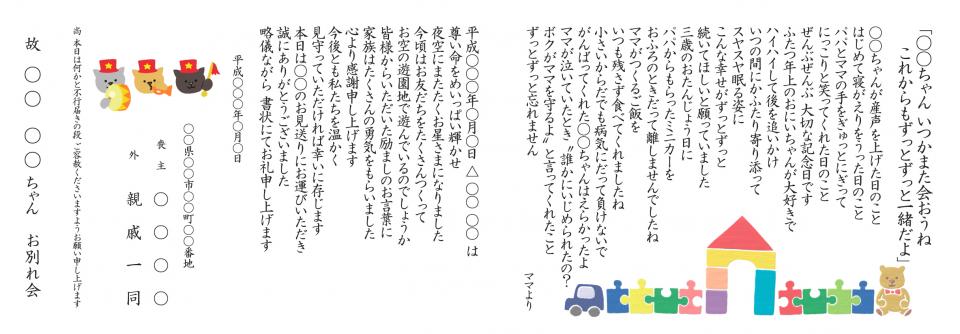 「〇〇ちゃん いつかまた会おうね
これからもずっとずっと一緒だよ」
〇〇ちゃんが産声を上げた日のこと
はじめて寝がえりをうった日のこと
パパとママの手をぎゅっとにぎって
にっこりと笑ってくれた日のこと
ぜんぶぜんぶ 大切な記念日です
ふたつ年上のおにいちゃんが大好きで
ハイハイして後を追いかけ
いつの間にかふたり寄り添って
スヤスヤ眠る姿に
こんな幸せがずっとずっと
続いてほしいと願っていました
三歳のおたんじょう日に
パパからもらったミニカーを
おふろのときだって離しませんでしたね
ママがつくるご飯を
いつも残さず食べてくれましたね
小さいからだでも病気にだって負けないで
がんばってくれた〇〇ちゃんはえらかったよ
ママが泣いていたとき〝誰かにいじめられたの?
ボクがママを守るよ〟と言ってくれたこと
ずっとずっと忘れません
ママより
平成〇〇〇年〇月〇日 △〇〇〇は
尊い命をめいっぱい輝かせ
夜空にまたたくお星さまになりました
今頃はお友だちをたくさんつくって
お空の遊園地で遊んでいるのでしょうか
皆様からいただいた励ましのお言葉に
家族はたくさんの勇気をもらいました
心より感謝申し上げます
今後とも私たちを温かく
見守っていただければ幸いに存じます
本日は〇〇のお見送りにお運びいただき
誠にありがとうございました
略儀ながら 書状にてお礼申し上げます
平成〇〇〇年〇月〇日
〇〇県〇〇市〇〇町〇〇番地
喪主 〇〇〇〇
外 親戚一同
尚 本日は何かと不行届きの段 ご容赦くださいますようお願い申し上げます
故 〇〇 〇〇ちゃん お別れ会